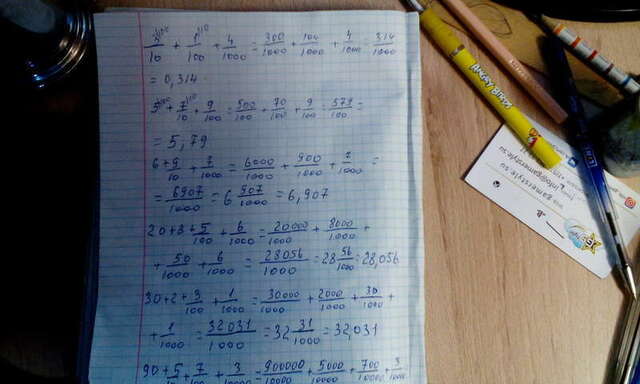 3/10 + 1/100 + 4/1000 = 300/1000 + 104/1000 + 4/1000 = 314/1000
= 0,314
5 + 7/10 + 9/100 = 500/100 + 70/100 + 9/100 = 579/100 =
= 5,79
6 + 9/10 + 7/1000 = 6000/1000 + 900/1000 + 7/1000 =
= 6907/1000 = 6 907/1000 = 6,907
20 + 8 + 5/100 + 6/1000 = 20000/1000 + 8000/1000 +
+ 50/1000 + 6/1000 = 28056/1000 = 28 56/1000 = 28,056
30 + 2 + 3/100 + 1/1000 = 30000/1000 + 2000/1000 + 30/1000 +
+ 1/1000 = 32031/1000 = 32 31/1000 = 32,031
90 + 5/10 + 7/100 + 3/1000 = 900000/10000 + 5000/10000 + 700/10000 + 3/1000
ANGRY BIRDS
www.gamesstyle.su
info@gamesstyle.su